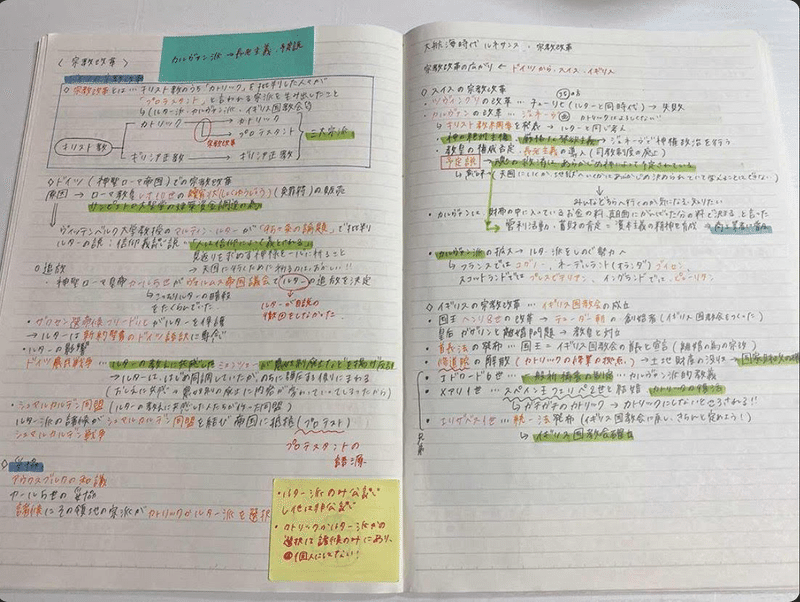 〈 宗教改革 〉
カルヴァン派 → 長老主義・予定説
◇宗教改革とは… キリスト教のうち「カトリック」を批判した人々が
「プロテスタント」と言われる宗派を生み出したこと
↳(ルター派・カルヴァン派・イギリス国教会等)
キリスト教
カトリック → カトリック
プロテスタント
宗教改革
ギリシア正教 → ギリシア正教
三大宗派
◇ドイツ(神聖ローマ帝国)での宗教改革
原因 → ローマ教皇レオ10世の贖宥状(しょくゆうじょう)(免罪符)の販売
サンピエトロ大聖堂の建築資金調達の為
ヴィッテンベルク大学教授のマルティン・ルターが「95ヶ条の論題」で批判
ルターの説:信仰義認説 人は信仰によって義とされる
見返りを求めず神様を一心に祈ること
→ 天国に行くために祈るのはおかしい!!
◇追放
・神聖ローマ皇帝カール5世がヴォルムス帝国議会でルターの追放を決定
ルターが自説の
撤回をしなかった。
・ザクセン選帝侯フリードリヒがルターを保護
→ルターは新約聖書のドイツ語訳に専念
・ルターの影響
ドイツ農民戦争… ルターの教えに共感したミュンツァーが農奴制廃止などを掲げ反乱
→ルターは、はじめ同調していたが、のちに諸侯を頼りにまわる
・シュマルカルデン同盟 (ルターの教えに共感した人たちが作った同盟)
ルター派の諸侯がシュマルカルデン同盟を結び帝国に抵抗(プロテスト)
シュマルカルデン戦争
プロテスタントの
語源
◇妥協
アウクスブルクの和議
カール5世の妥協
諸侯にその領地の宗派がカトリックかルター派を選択
・ルター派のみ公認で
他は非公認
・カトリックかルター派かの
選択は諸侯のみにあり、
個人にはない!
大航海時代 ルネサンス・宗教改革
宗教改革のながり ← ドイツから、スイス、イギリス
◇スイスの宗教改革
・ツヴィングリの改革 … チューリヒ(ルターと同時代) → 失敗
・カルヴァンの改革 … ジュネーヴ
↳キリスト教綱要を発表 → ルターと同じ考え
・神の絶対主権 → ジュネーヴで神権政治を行う
・教皇の権威否定・長老主義の導入(司教制度の廃止)
予定説 → 魂の救済はあらかじめ神によって予定されている
みんなどちらへ行くのか気になる・知りたい
・カルヴァンは、財布の中に入っているお金の料、真面目にがんばった分の料で決まると言った
↳営利活動・蓄財の肯定 = 資本主義の精神を育成 → 商工業者に普及
・カルヴァン派の拡大→ ルター派をしのぐ勢力へ
↳フランスではユグノー、ネーデルラント(オランダ)ゴイセン、
スコットランドではプレスビテリアン、イングランドでは、ピューリタン
◇イギリスの宗教改革 … イギリス国教会の成立
・国王ヘンリ8世の改革 → テューダー朝の創始者(イギリス国教会をつくった)
皇后カザリンと離婚問題 → 教皇と対立
・首長法の発布 … 国王=イギリス国教会の首長と宣言(離婚の為の宗教)
・修道院の解散(カトリックの修業の拠点。) →土地財産の没収→
・エドワード6世 … 一般祈祷書の制定 … カルヴァン派的教義
・メアリ1世 … スペイン王フェリペ2世と結婚 カトリックの復活
↳ガチガチのカトリック → カトリックにしないとそろう!!
・エリザベス1世 … 統一法発布
↳イギリス国教会確立